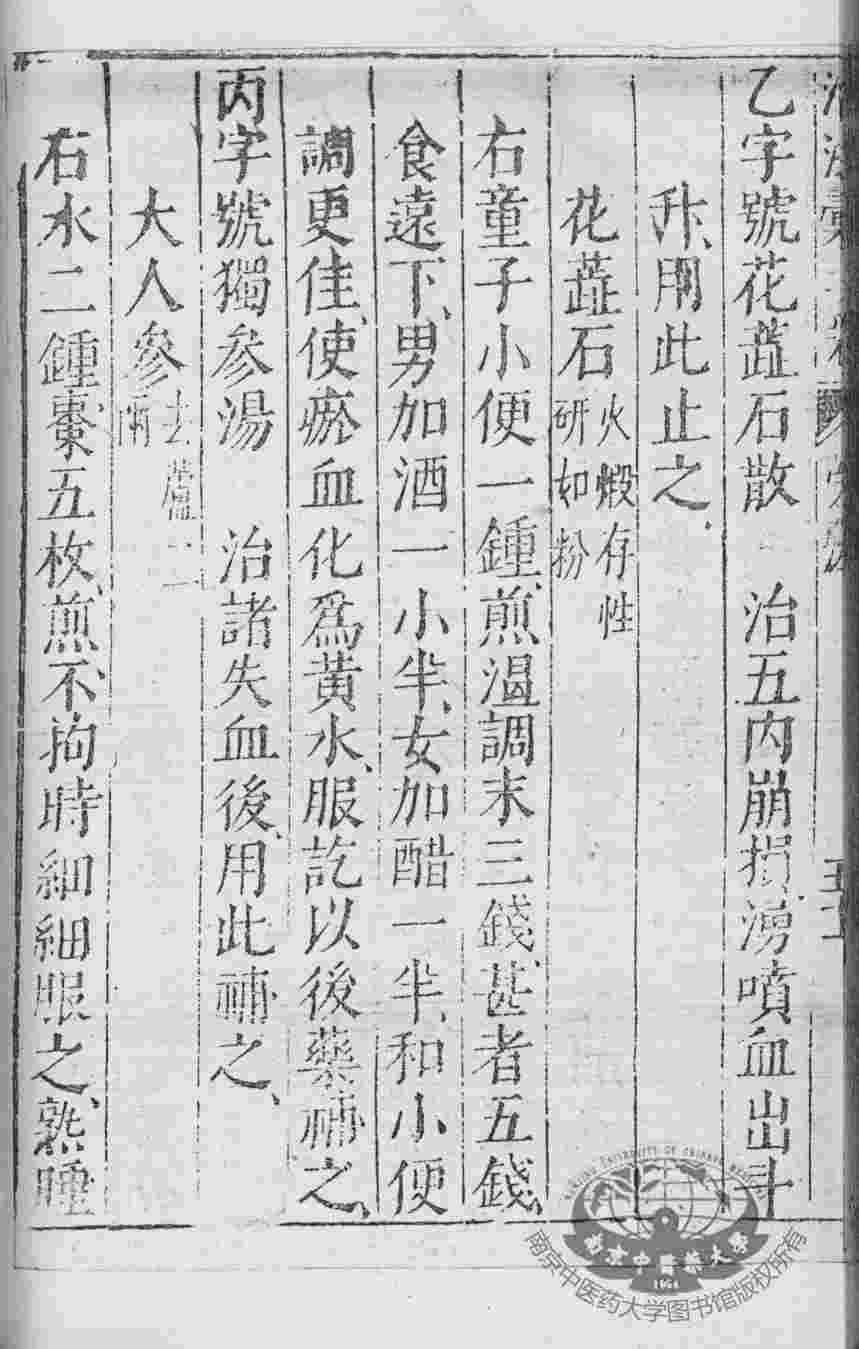 乙字號花蕋石散 治五内崩損、湧噴血出斗
升、用此止之、
花蕋石火煅存性研如粉
右童子小便一鍾、煎溫調末三錢、甚者五錢、
食遠下、男加酒一小半、女加醋一半、和小便
調更佳、使瘀血化爲黄水、服訖以後藥補之、
丙字號獨参湯 治諸失血後、用此補之、
大人參去蘆二兩
右水二鍾、棗五枚、煎不拘時細細服之、熟睡
南京中医药大学图书馆版权所有
南京中醫藥大學
1954